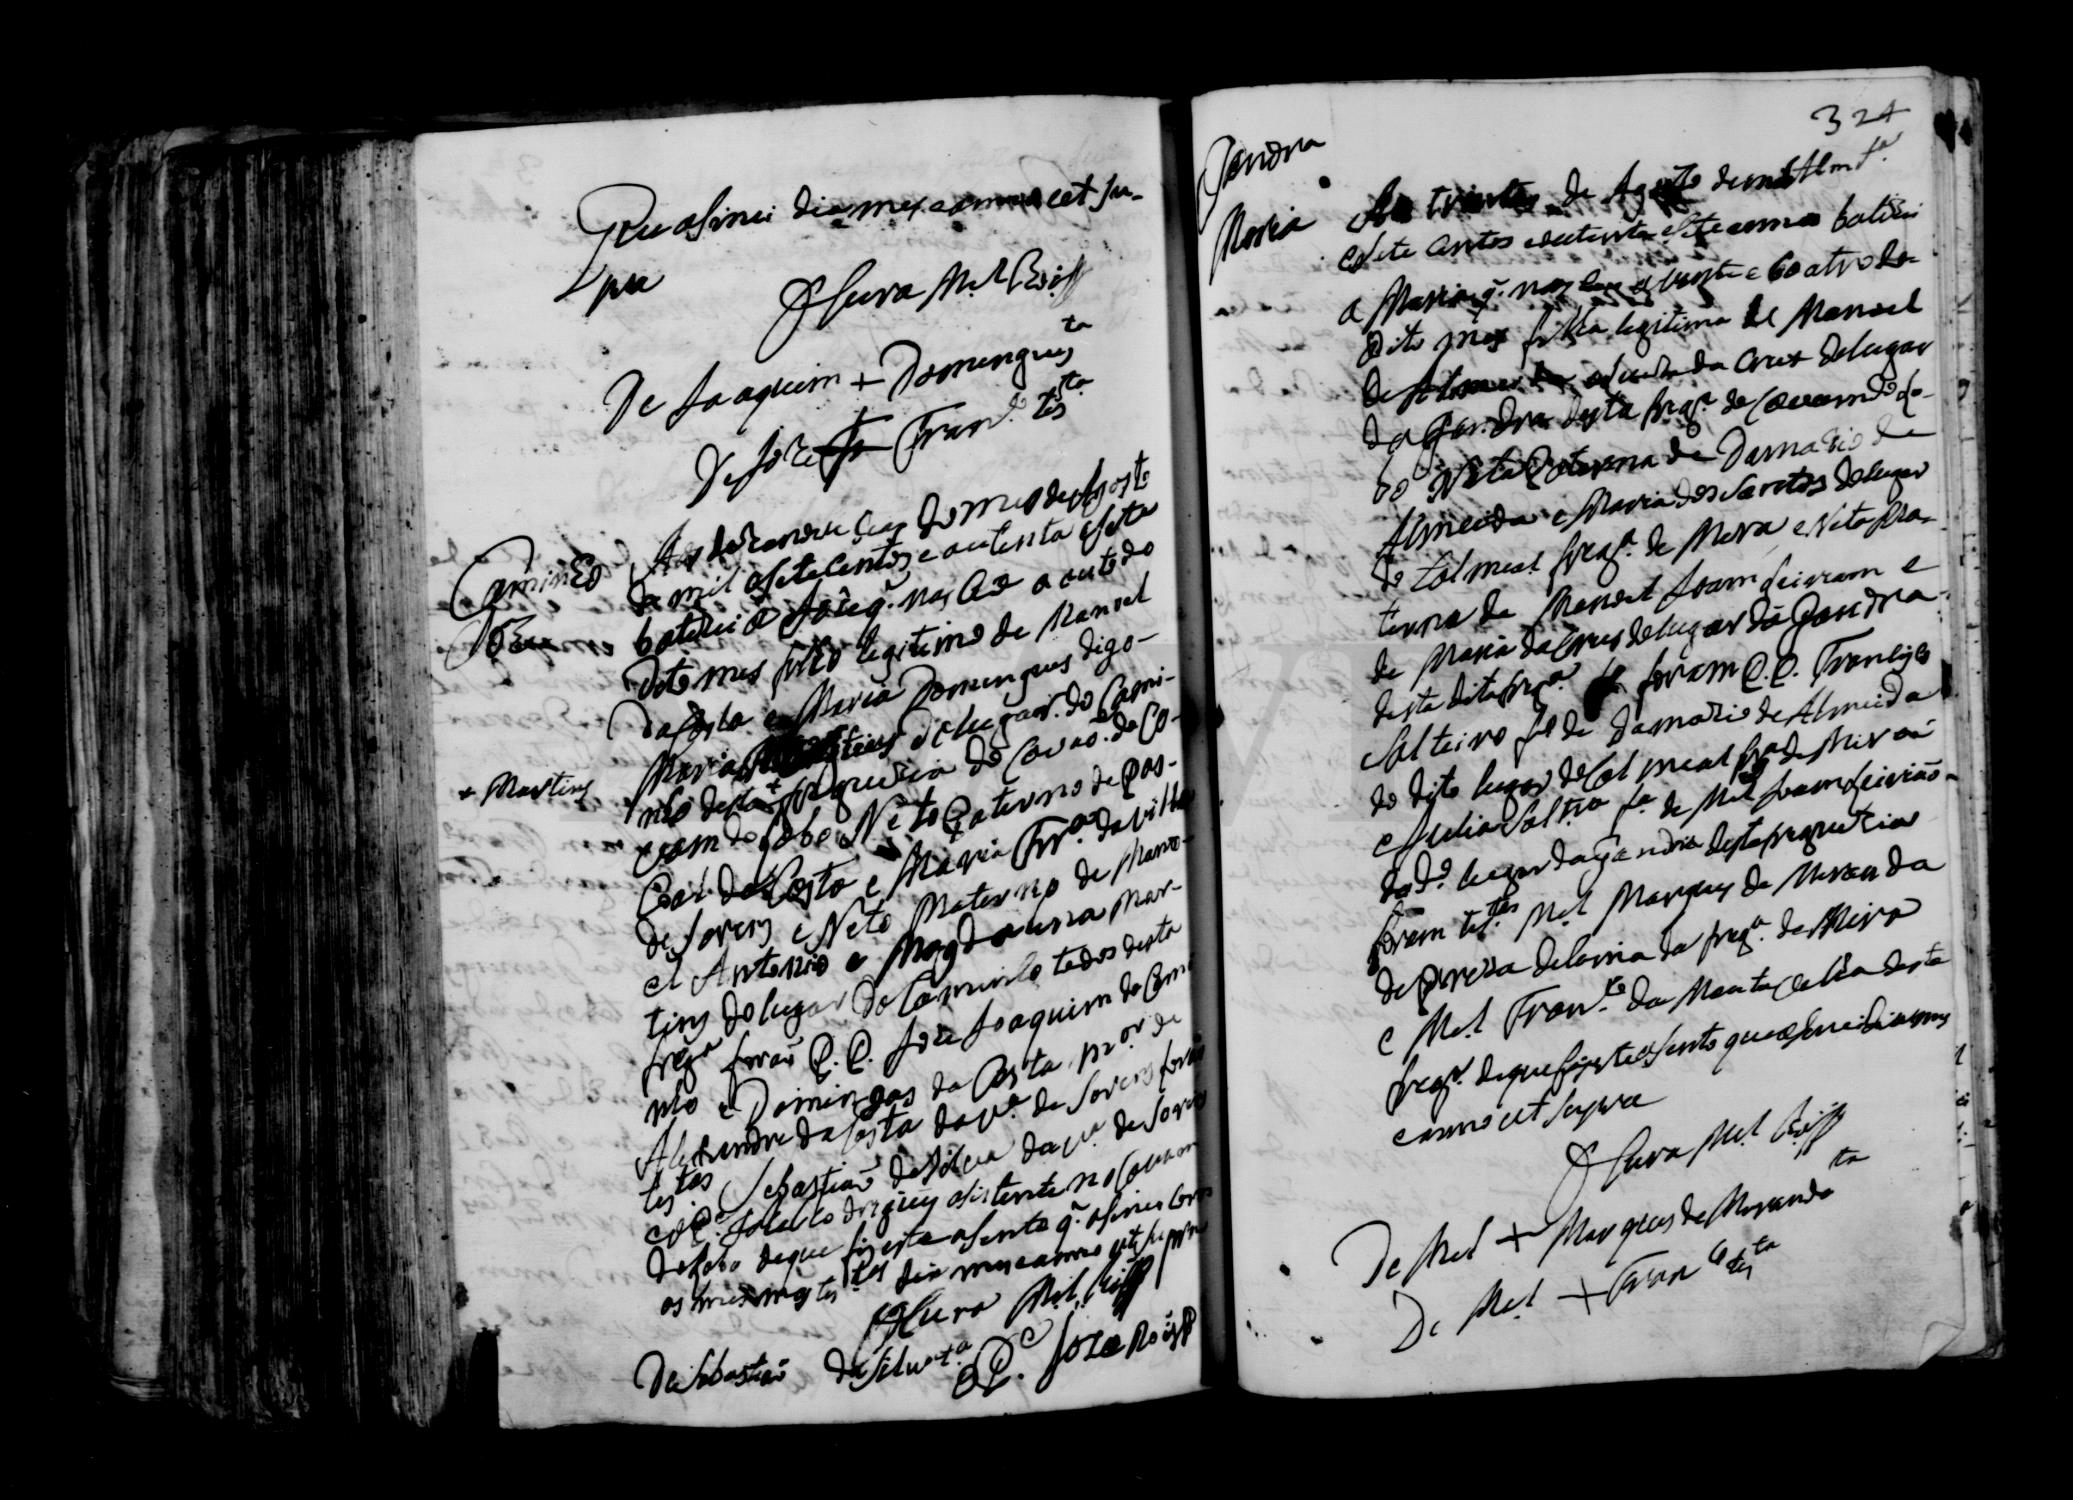 Que asinei dia mes e anno ut Su-
pra
O Cura Mel Roiz
De Joaquim + Domingues ta
De Joze + Fran.co tes ta
Caminho
Joze
Aos dozanove dias do mes de Agosto
de mil e sete centos e outenta e sete
batizei a Joze q. nasceo a oute do
dito mes filho legitimo de Manoel
da Costa e Maria Domingues digo
Maria do lugar do Cami-
+ Martins
nho desta + freguezia do Couão. do Co-
vam do Lobo Neto Paterno de Pas-
coal da Costa e Maria Fr.ca da Villa
de Sorens e Neto Materno de Mano-
el Antonio e Magdalena Mar-
tins do lugar do Caminho todos desta
freg.a forão P. P. Joze Joaquim do Cami
nho e Domingas da Costa por p.or de
Alexandre da Costa da V.a de Sorens forão
tes tas Sebastião da Silva da V.a de Sorens
e o P.e Joze Rodrigues asistente no Covam
do Lobo de que fiz este asento q. asinei com
os mesmos tes.tas dia mes e anno ut supra
O Cura Mel Roiz
De Sebastião da Silva t.a
O P.e Joze Roiz
324
Gandra
Maria
Aos trinta de Agosto de mil
e sete centos e outenta e sete annos batizei
a Maria q. nasceu a vinte e coatro do
dito mes filha legitima de Manoel
de Almeida e da Cruz do lugar
da Gandra desta freg.a de Covam do Lo-
bo Neta Paterna de Damazio de
Almeida e Maria dos Santos do lugar
do Colmeal freg.a de Mira e Neta Ma-
terna de Manoel Joam e
de Maria da Cruz do lugar da Gandra
desta dita freg.a foram P. P. Francisco
Solteiro f.o de Damazio de Almeida
do dito lugar do Colmeal fr.a de Mira
e Solt.ra f.a de Mel Joam
do d.o lugar da Gandra desta freguezia
foram tes.tas Mel Marques de Miranda
da freg.a de Mira
e Mel Fran.co da desta
freg.a de que fiz este asento que asinei dia mes
e anno ut supra
O Cura Mel Roiz
De Mel + Marques de Miranda ta
De Mel + Fran.co tes ta